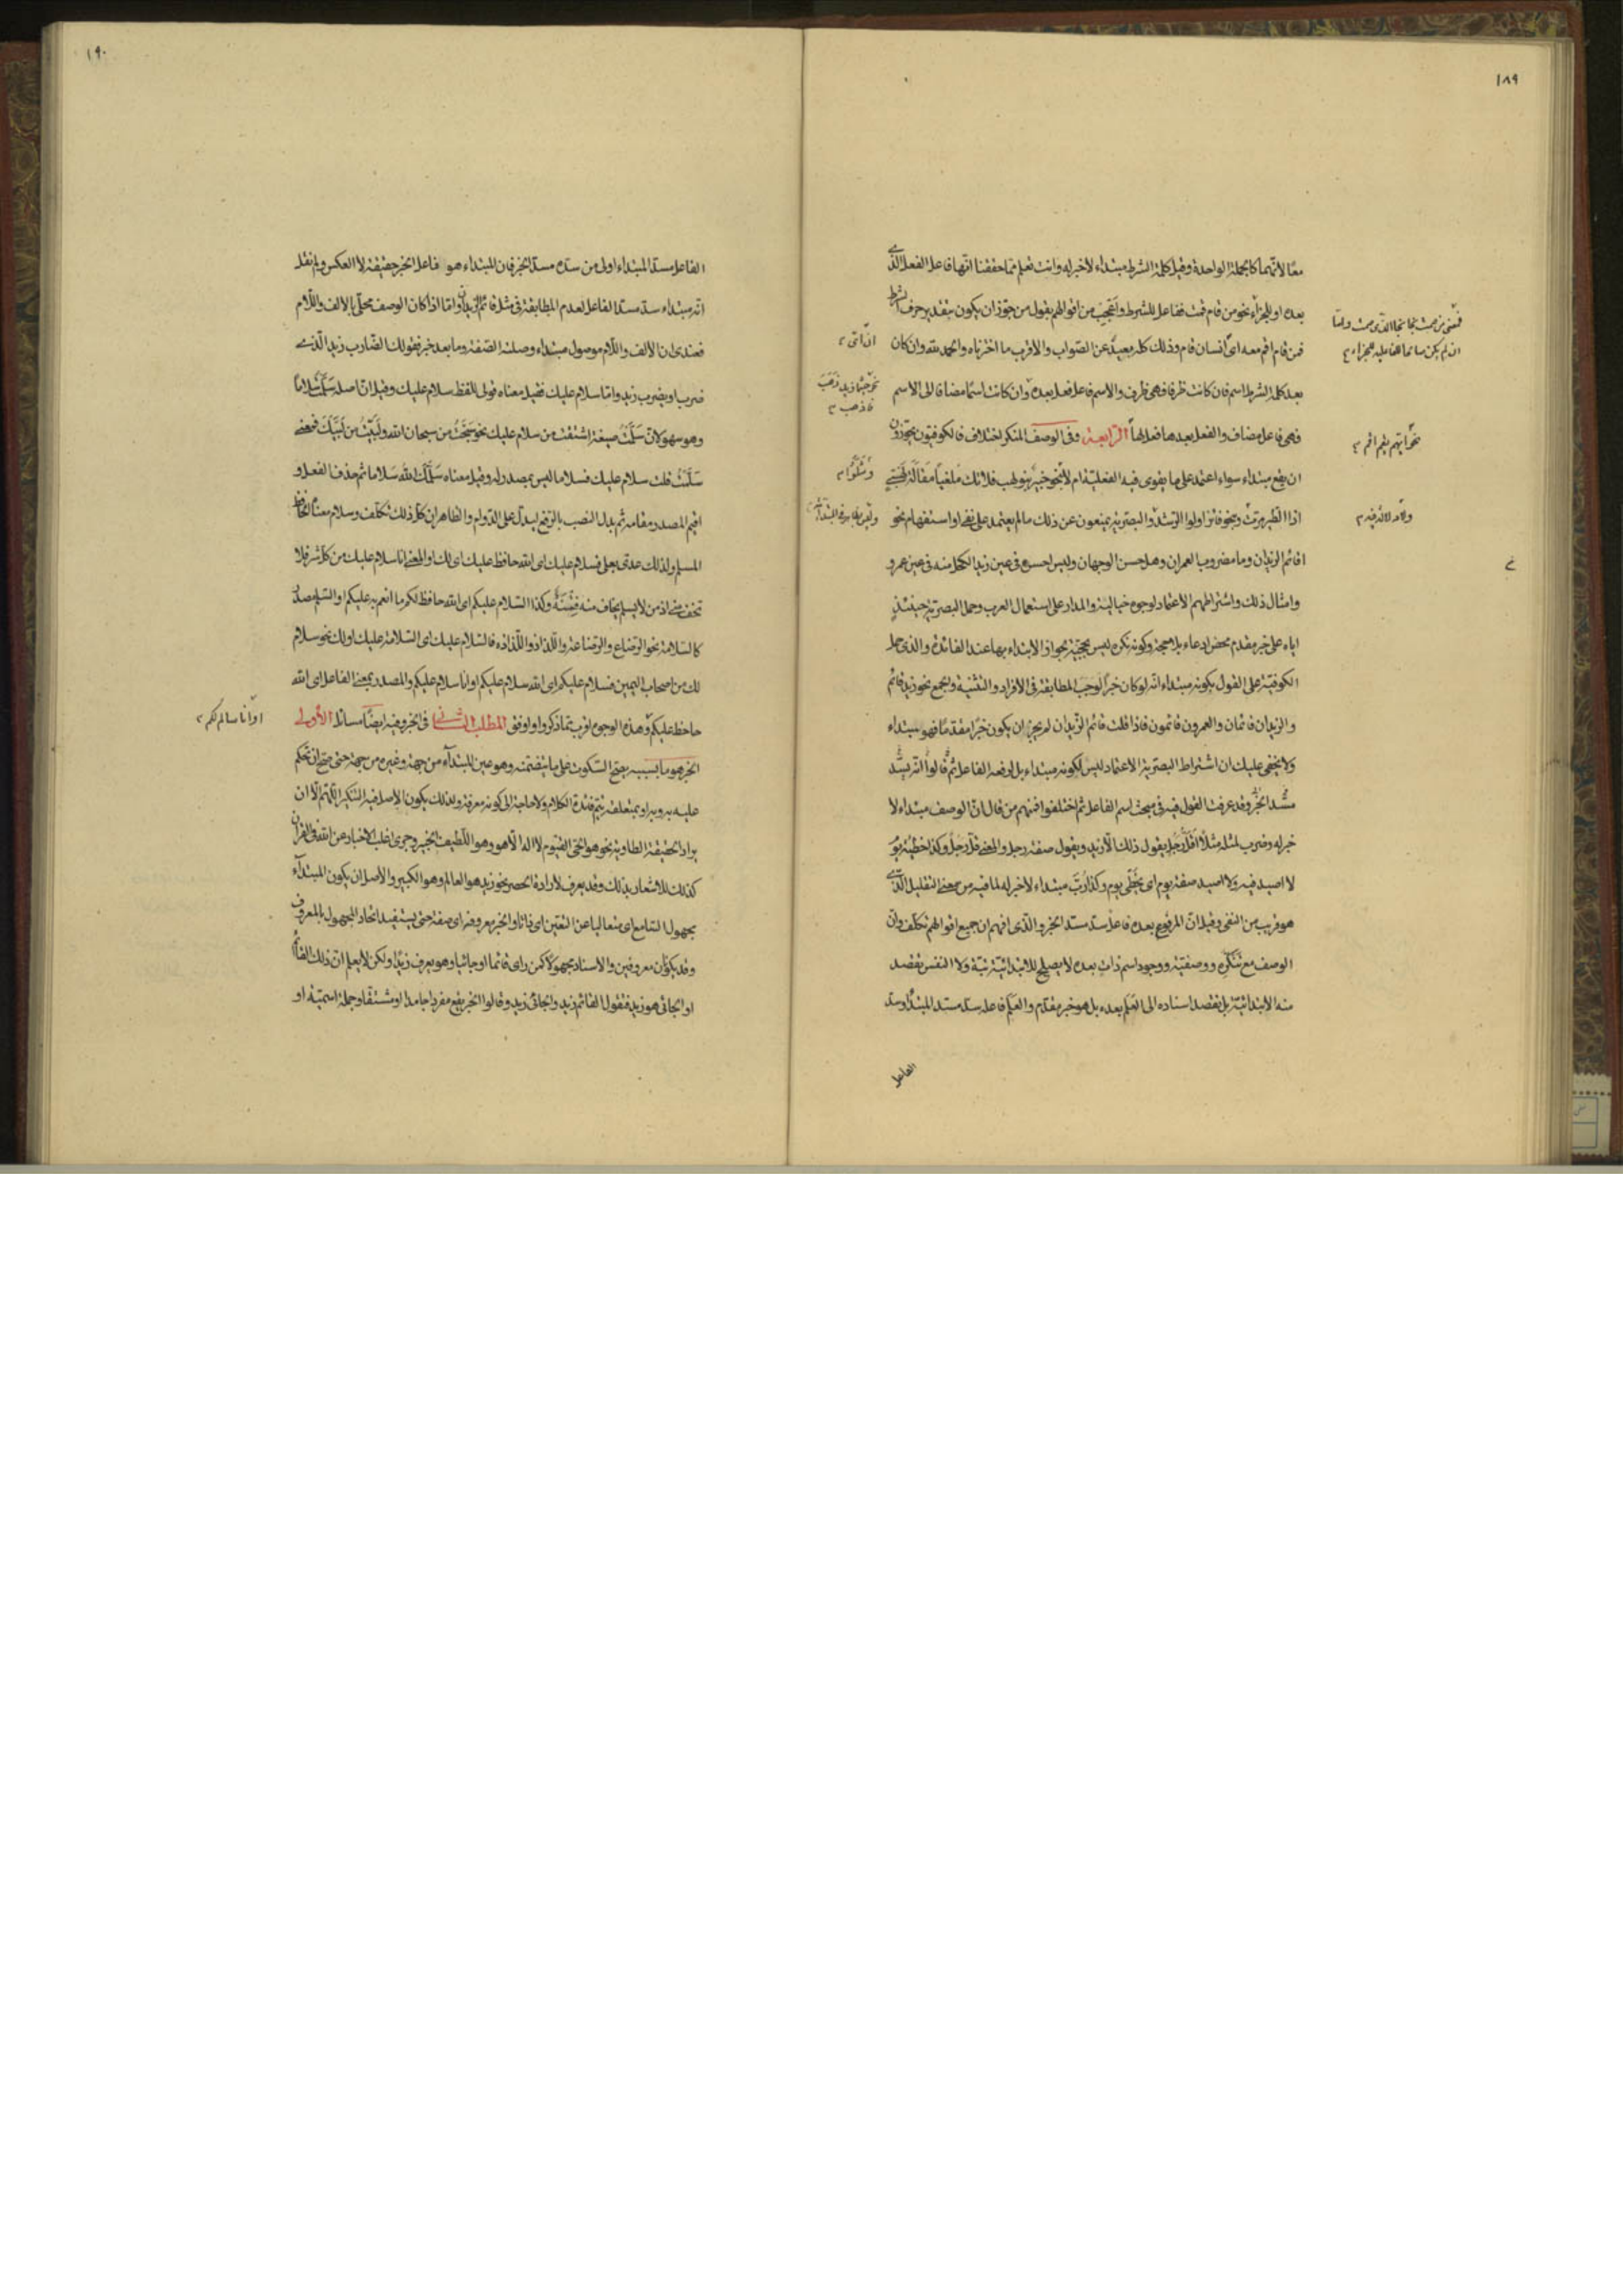 ١٨٩
معًا لانّهما كالجملة الواحدة وقيل كلمة الشرط مبتداء لاخبر له وانت تعلم مما حققنا انّها فاعل الفعل الّذى
بعده او للجزاء نحو من قام قمت ففاعل للشرط واتعجّب من اقوالهم بقول من جوّز ان يكون بتقدير حرف الشرط
فمن قام اقم معه اى انسان قام وذلك كله بعيد عن الصّواب والاقرب ما اخترناه والحمد لله وان كان
بعد كلمة الشرط اسم فان كانت ظرفا فهى ظرف والاسم فاعل فعل بعده وان كانت اسمًا مضافا الى الاسم
فهى فاعل مضاف والفعل بعدها فعل لها الرّابعة وفى الوصف المنكر اختلاف فالكوفيّون يجوّزون
ان يقع مبتداء سواء اعتمد على ما يقوى فيه الفعليّة ام لا نحو خبير بنو لهب فلا تك ملغيًا مقالة لهبىّ
اذا الطّير مرّت ونحو فائز اولوا الرّشد والبصريّة يمنعون عن ذلك ما لم يعتمد على نفى او استفهام نحو
اقائم الزيدان وما مضروب العمران وهل حسن الوجهان وليس احسن فى عين زيد الكحل منه فى عين عمرو
وامثال ذلك واشتراطهم الاعتماد لوجوه خيالية والمدار على استعمال العرب وحمل البصريّة حينئذٍ
اياه على خبر مقدم محض ادعاء بلا حجة وكونه نكرة ليس بحجّة بجواز الابتداء بها عند الفائدة والذى حمل
الكوفيّة على القول بكونه مبتداء انّه لو كان خبرًا لوجب المطابقة فى الافراد والتثنية والجمع نحو زيد قائم
والزيدان قائمان والعمرون قائمون فاذا قلت قائم الزّيدان لم يجز ان يكون خبرًا مقدمًا فهو مبتداء
ولا يخفى عليك ان اشتراط البصريّة الاعتماد ليس لكونه مبتداء بل لرفعه الفاعل ثم قالوا انّه يسدّ
مسدّ الخبر وقد عرفت القول فيه فى مبحث اسم الفاعل ثم اختلفوا فمنهم من قال انّ الوصف مبتداء لا
خبر له وضرب لمثله مثلًا اقلّ رجل يقول ذلك الّا زيد ويقول صفة رجل والمعنى قلّ رجل وكذا خطيئة يوم
لا اصيد فيه ولا اصيد صفة يوم اى يخطى يوم وكذا ربّ مبتداء لا خبر له لما فيه من معنى التقليل الّذى
هو قريب من النفى وقيل انّ المرفوع بعده فاعل سد مسدّ الخبر والذى افهم ان جميع اقوالهم تكلّف وانّ
الوصف مع تنكّره ووصفيّته ووجود اسم ذات بعده لا يصلح للابتدائيّة بتّة ولا النفس يقصد
منه الابتدائيّة بل يقصد اسناده الى العلم بعده بل هو خبر مقدم والعلم فاعله سدّ مسدّ المبتداء وسدّ
الفاعل
ان اتى
نحو حيثما زيد ذهب
فاذهب
نحو ايّهم يقم اقم
١٩٠
الفاعل مسدّ المبتداء اولى من سدّه مسدّ الخبر فان المبتداء هو فاعل الخبر حقيقة لا العكس ولم نقل
انّه مبتداء سدّ مسدّ الفاعل لعدم المطابقة فى مثل قائم الزيدان وامّا اذا كان الوصف محلّى بالالف واللّام
فعندى ان الالف واللّام موصول مبتداء وصلته الصّفة وما بعد خبر فقولك الضّارب زيد الّذى
ضرب او يضرب زيد وامّا سلام عليك فقيل معناه قولى للفظ سلام عليك وقيل انّ اصله سلّمت سلامًا
وهو سهو لانّ سلّمت صيغة اشتقّت من سلام عليك نحو سبّحت من سبحان الله ولبّيت من لبّيك فمعنى
سلّمت قلت سلام عليك فسلاما ليس بمصدر له وقيل معناه سلّمك الله سلاما ثم حذف الفعل و
اقيم المصدر مقامه ثم بدل النصب بالرّفع ليدلّ على الدّوام والظاهر ان كلّ ذلك تكلّف وسلام معناه الحافظ
المسلم ولذلك عدّى بعلى فسلام عليك اى الله حافظ عليك اى لك او المعنى انا سلام عليك من كلّ شر فلا
تخف منى اذ من لا يسلم يخاف منه فتنته وكذا السّلام عليكم اى الله حافظ لكم ما انعم به عليكم او السّلم مصدر
كالسّلامة نحو الرّضاع والرّضاعة واللّذاذ واللّذاذه فالسّلام عليك اى السّلامة عليك اولك نحو سلام
لك من اصحاب اليمين فسلام عليكم اى الله سلام عليكم او انا سلام عليكم والمصدر بمعنى الفاعل اى الله
حافظ عليكم وهذه الوجوه اقرب مما ذكروا واوفق المطلب الثّانى فى الخبر وفيه ايضًا مسائل الأولى
الخبر هو ما بسببه يصح السّكوت على ما يتضمّنه وهو عين المبتدآء من جهة وغيره من جهة حتى صحّ ان يحكم
عليه به وبه او بمتعلقه يتم فائدة الكلام ولا حاجة الى كونه معرفة ولذلك يكون الاصل فيه التنكير اللّهمّ الّا ان
يراد الحقيقة نحو هو الحىّ القيّوم لا اله الّا هو وهو اللّطيف الخبير وجرى اغلب الاخبار عن الله فى القرآن
كذلك للاشعار بذلك وقد يعرف لارادة الحصر نحو زيد هو العالم وهو الكبير والأصل ان يكون المبتدآء
مجهول السّامع اى متعاليا عن التعيّن اى ذاتا والخبر معروفه اى صفة حتى يستفيد اتحاد المجهول بالمعروف
وقد يكونان معروفين والاسناد مجهولًا كمن راى قائما او جائيا وهو يعرف زيدًا ولكن لا يعلم انّ ذلك القائم
او الجائى هو زيد فتقول القائم زيد والجائى زيد وقالوا الخبر يقع مفردا جامدا او مشتقّا وجملة اسميّة او
او انا سالم لكم